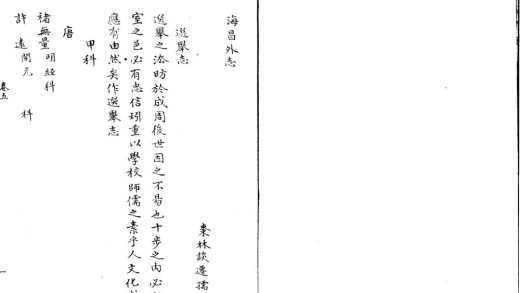 海昌外志
棗林談遷孺
選舉志
選舉之法昉於成周後世因之不易也十步之內必
室之邑必有忠信矧重以學校師儒之素乎人文化
應有由然矣作選舉志
甲科
唐
褚無量明經科
許遠開元 科
卷五
一